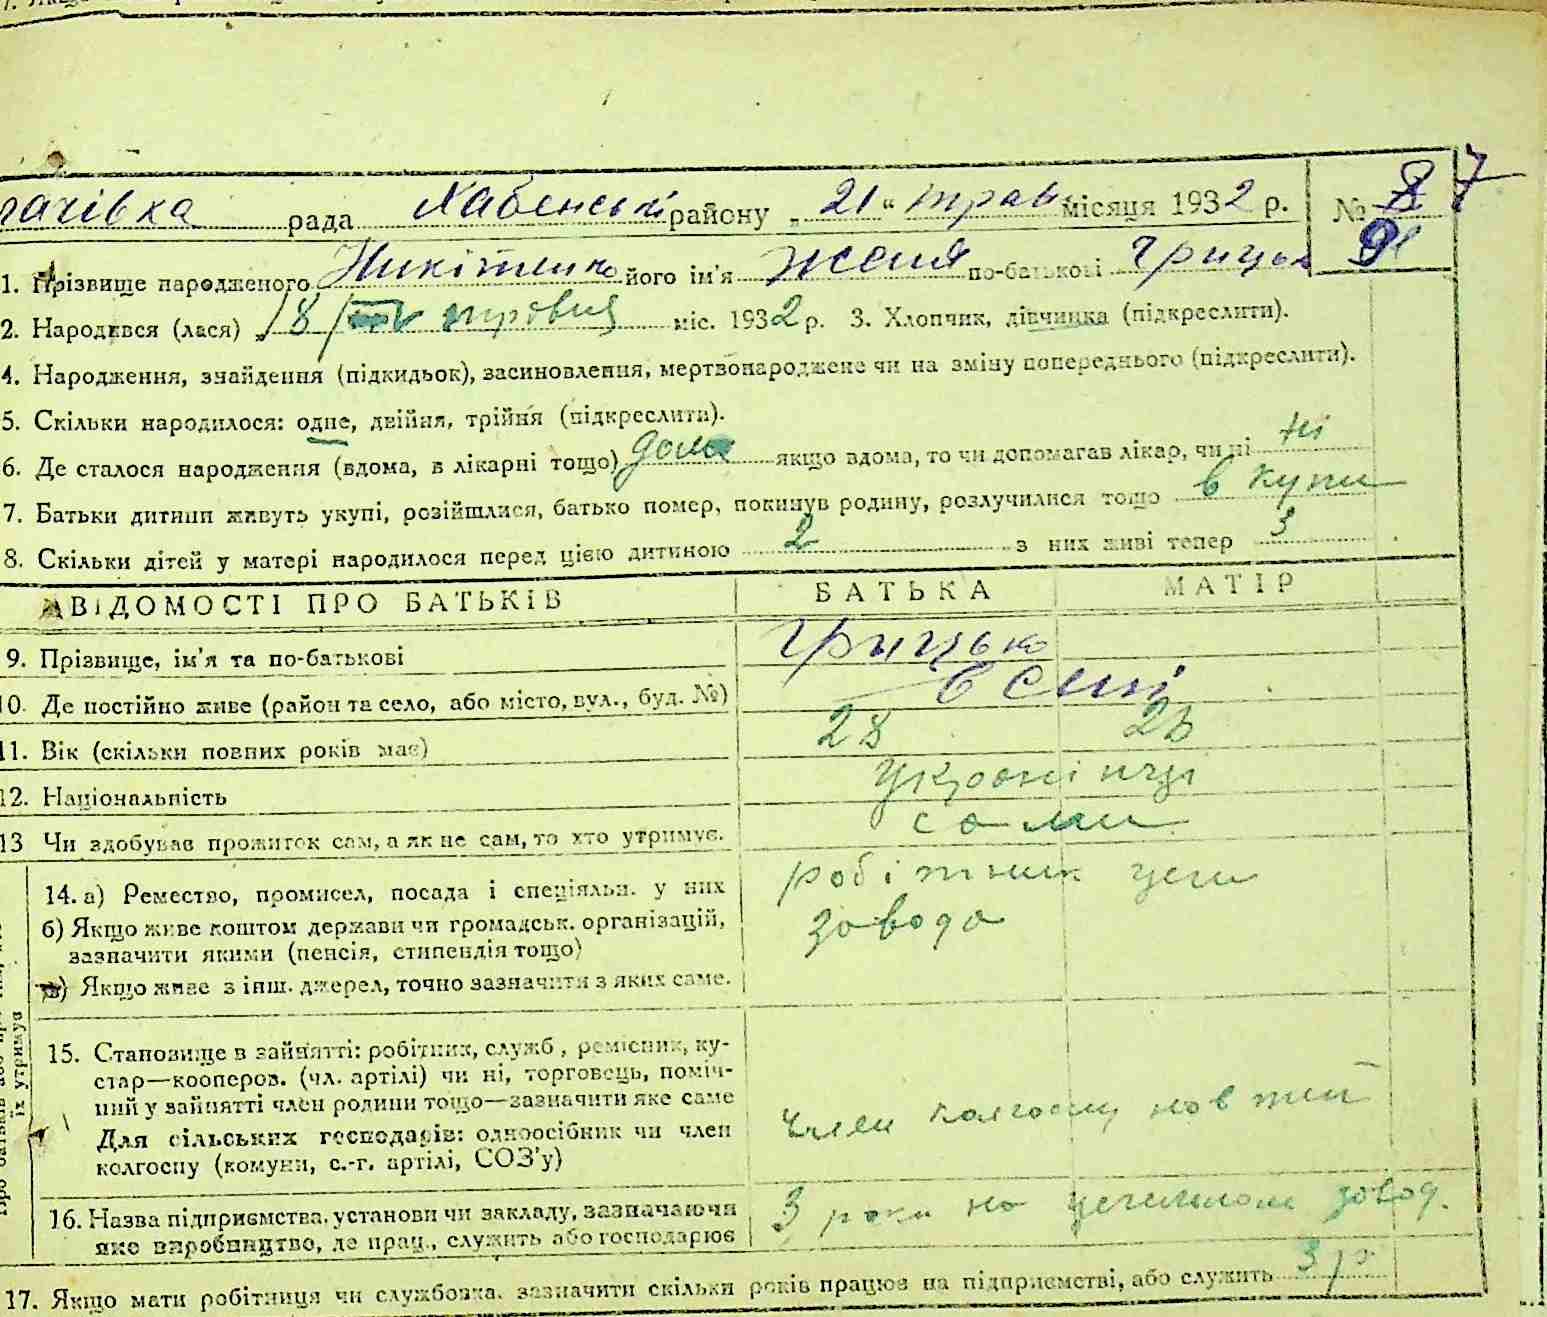 рада Хабенський району „ 21 “ трав місяця 1932 р. № 8 7
91
1. Прізвище народженого Никітенко його ім'я Женя по-батькові Грицьк
2. Народився (лася) „ 18 травня міс. 1932 р. 3. Хлопчик, дівчинка (підкреслити).
4. Народження, знайдення (підкидьок), засиновлення, мертвонароджене чи на зміну попереднього (підкреслити).
5. Скільки народилося: одне, двійня, трійня (підкреслити).
6. Де сталося народження (вдома, в лікарні тощо) дома якщо вдома, то чи допомагав лікар, чи ні ні
7. Батьки дитини живуть укупі, розійшлися, батько помер, покинув родину, розлучилися тощо в купи
8. Скільки дітей у матері народилося перед цією дитиною 2 з них живі тепер 3
ВІДОМОСТІ ПРО БАТЬКІВ БАТЬКА МАТІР
9. Прізвище, ім'я та по-батькові Грицько
10. Де постійно живе (район та село, або місто, вул., буд. №) в селі
11. Вік (скільки повних років має) 28 26
12. Національність Українці
13 Чи здобуває прожиток сам, а як не сам, то хто утримує. сами
14. а) Ремество, промисел, посада і спеціяльн. у них робітник цеги
б) Якщо живе коштом держави чи громадськ. організацій, завода
зазначити якими (пенсія, стипендія тощо)
в) Якщо живе з інш. джерел, точно зазначити з яких саме.
їх утримує
15. Становище в зайнятті: робітник, служб, ремісник, ку-
стар—кооперов. (чл. артілі) чи ні, торговець, поміч-
ний у зайнятті член родини тощо—зазначити яке саме
Для сільських господарів: одноосібник чи член член колгоспу
колгоспу (комуни, с.-г. артілі, СОЗ'у)
16. Назва підприємства, установи чи закладу, зазначаючи 3 роки на завод.
яке виробництво, де прац., служить або господарює
17. Якщо мати робітниця чи службовка, зазначити скільки років працює на підприємстві, або служить 3 р